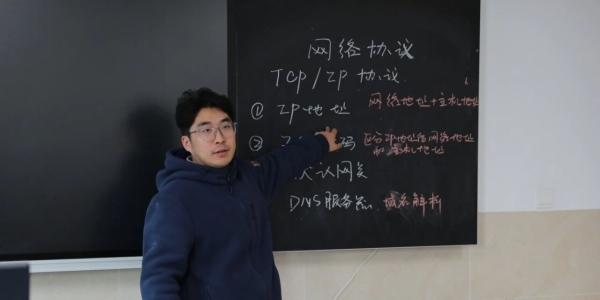 网络协议
TCP/IP协议
① IP地址 网络地址+主机地址
② 子 码 区分IP地址的网络地址
和主机地址
认网关
DNS服务器 域名解料